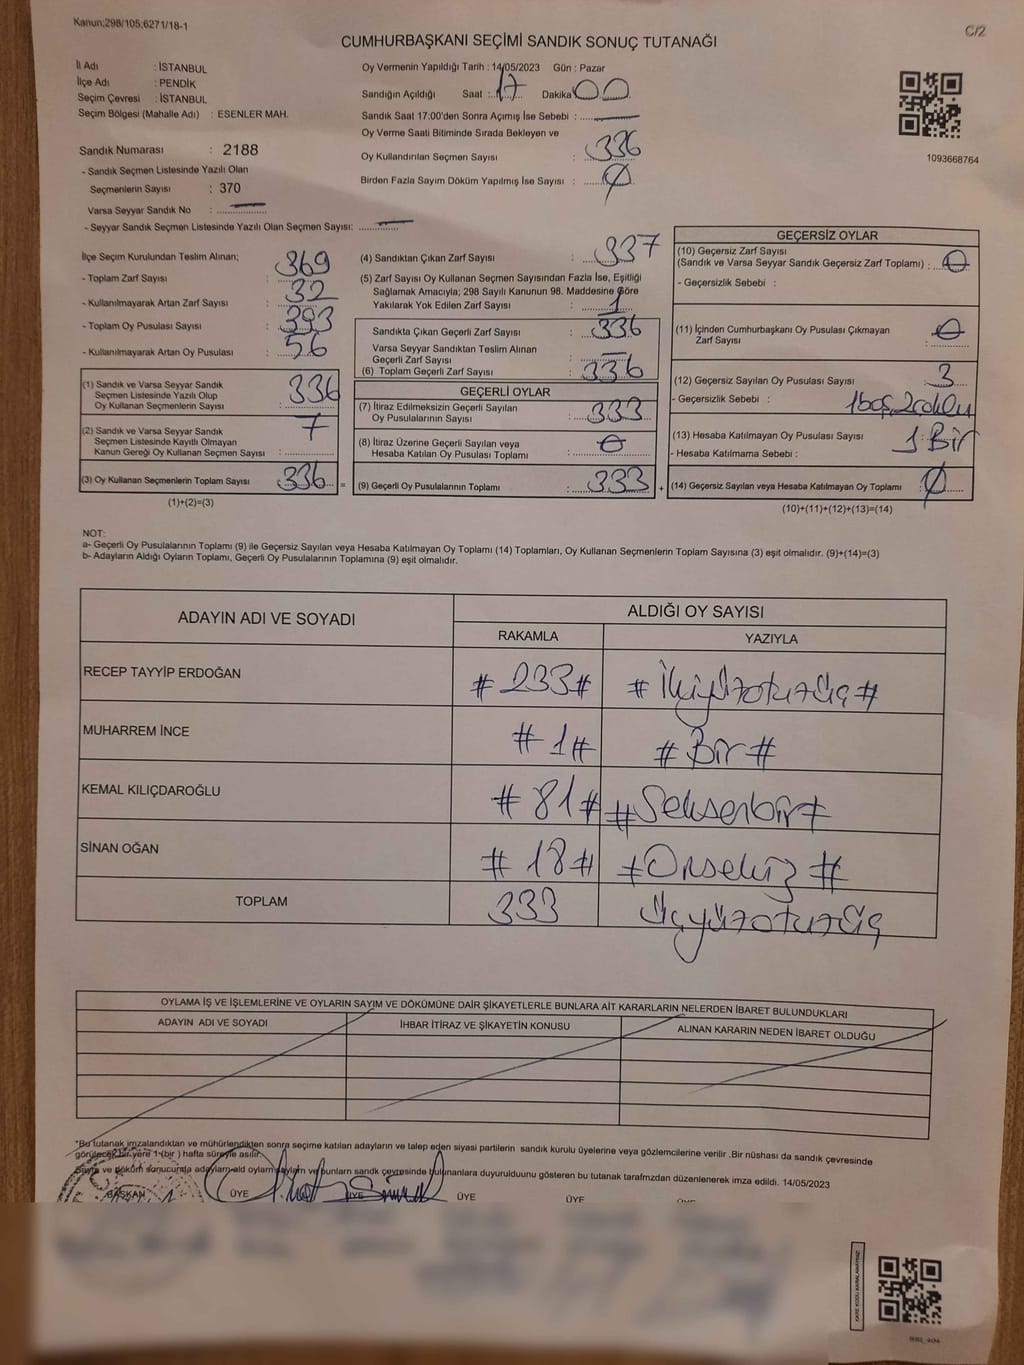 Kanun;298/105;6271/18-1
C/2
CUMHURBAŞKANI SEÇİMİ SANDIK SONUÇ TUTANAĞI
İl Adı : İSTANBUL
İlçe Adı : PENDİK
Seçim Çevresi : İSTANBUL
Seçim Bölgesi (Mahalle Adı) : ESENLER MAH.
Sandık Numarası : 2188
- Sandık Seçmen Listesinde Yazılı Olan
Seçmenlerin Sayısı : 370
Varsa Seyyar Sandık No :
- Seyyar Sandık Seçmen Listesinde Yazılı Olan Seçmen Sayısı:
Oy Vermenin Yapıldığı Tarih : 14/05/2023 Gün : Pazar
Sandığın Açıldığı Saat :17 Dakika 00
Sandık Saat 17:00'den Sonra Açımış İse Sebebi :
Oy Verme Saati Bitiminde Sırada Bekleyen ve
Oy Kullandırılan Seçmen Sayısı : 336
Birden Fazla Sayım Döküm Yapılmış İse Sayısı : Ø
1093668764
İlçe Seçim Kurulundan Teslim Alınan;
- Toplam Zarf Sayısı : 369
- Kullanılmayarak Artan Zarf Sayısı : 32
- Toplam Oy Pusulası Sayısı : 393
- Kullanılmayarak Artan Oy Pusulası : 56
(1) Sandık ve Varsa Seyyar Sandık
Seçmen Listesinde Yazılı Olup
Oy Kullanan Seçmenlerin Sayısı : 336
(2) Sandık ve Varsa Seyyar Sandık
Seçmen Listesinde Kayıtlı Olmayan
Kanun Gereği Oy Kullanan Seçmen Sayısı : 7
(3) Oy Kullanan Seçmenlerin Toplam Sayısı : 336 =
(1)+(2)=(3)
(4) Sandıktan Çıkan Zarf Sayısı : 337
(5) Zarf Sayısı Oy Kullanan Seçmen Sayısından Fazla İse, Eşitliği
Sağlamak Amacıyla; 298 Sayılı Kanunun 98. Maddesine Göre
Yakılarak Yok Edilen Zarf Sayısı : 1
Sandıkta Çıkan Geçerli Zarf Sayısı : 336
Varsa Seyyar Sandıktan Teslim Alınan
Geçerli Zarf Sayısı :
(6) Toplam Geçerli Zarf Sayısı : 336
GEÇERLİ OYLAR
(7) İtiraz Edilmeksizin Geçerli Sayılan
Oy Pusulalarının Sayısı : 333
(8) İtiraz Üzerine Geçerli Sayılan veya
Hesaba Katılan Oy Pusulası Toplamı : 0
(9) Geçerli Oy Pusulalarının Toplamı : 333 +
GEÇERSİZ OYLAR
(10) Geçersiz Zarf Sayısı
(Sandık ve Varsa Seyyar Sandık Geçersiz Zarf Toplamı) : 0
- Geçersizlik Sebebi :
(11) İçinden Cumhurbaşkanı Oy Pusulası Çıkmayan
Zarf Sayısı : 0
(12) Geçersiz Sayılan Oy Pusulası Sayısı : 3
- Geçersizlik Sebebi : 1boş, 2çoklu
(13) Hesaba Katılmayan Oy Pusulası Sayısı : 1 Bir
- Hesaba Katılmama Sebebi :
(14) Geçersiz Sayılan veya Hesaba Katılmayan Oy Toplamı : Ø
(10)+(11)+(12)+(13)=(14)
NOT:
a- Geçerli Oy Pusulalarının Toplamı (9) ile Geçersiz Sayılan veya Hesaba Katılmayan Oy Toplamı (14) Toplamları, Oy Kullanan Seçmenlerin Toplam Sayısına (3) eşit olmalıdır. (9)+(14)=(3)
b- Adayların Aldığı Oyların Toplamı, Geçerli Oy Pusulalarının Toplamına (9) eşit olmalıdır.
ADAYIN ADI VE SOYADI
ALDIĞI OY SAYISI
RAKAMLA YAZIYLA
RECEP TAYYİP ERDOĞAN # 233# # İkiyüzotuzüç #
MUHARREM İNCE # 1# # Bir #
KEMAL KILIÇDAROĞLU # 81# #Seksenbir#
SİNAN OĞAN # 18# #Onsekiz #
TOPLAM 333 Üçyüzotuzüç
OYLAMA İŞ VE İŞLEMLERİNE VE OYLARIN SAYIM VE DÖKÜMÜNE DAİR ŞİKAYETLERLE BUNLARA AİT KARARLARIN NELERDEN İBARET BULUNDUKLARI
ADAYIN ADI VE SOYADI İHBAR İTİRAZ VE ŞİKAYETİN KONUSU ALINAN KARARIN NEDEN İBARET OLDUĞU
*Bu tutanak imzalandıktan ve mühürlendikten sonra seçime katılan adayların ve talep eden siyasi partilerin sandık kurulu üyelerine veya gözlemcilerine verilir .Bir nüshası da sandık çevresinde
görülecek bir yere 1 (bir ) hafta süreyle asılır.
ve döküm sonucunda bunların sandık çevresinde bulunanlara duyurulduunu gösteren bu tutanak tarafmzdan düzenlenerek imza edildi. 14/05/2023
BAŞKAN ÜYE ÜYE ÜYE ÜYE